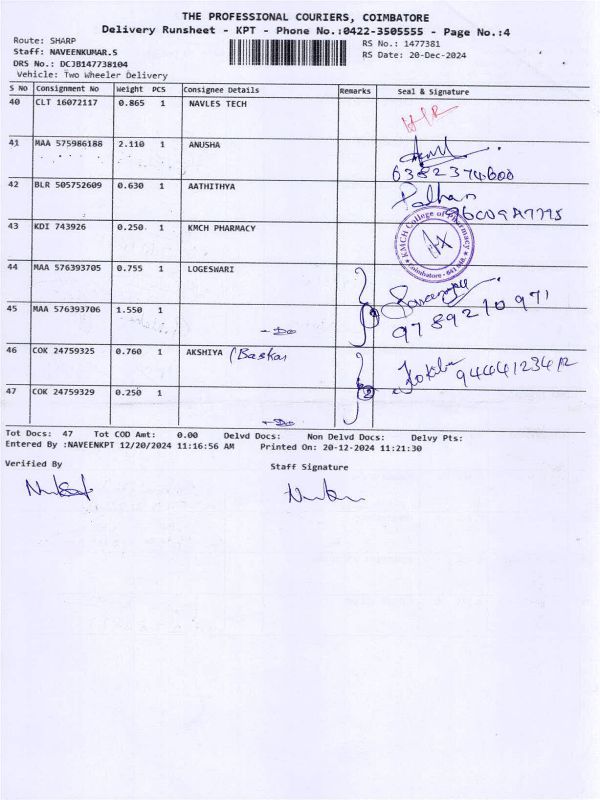 THE PROFESSIONAL COURIERS, COIMBATORE
Delivery Runsheet - KPT - Phone No.:0422-3505555 - Page No.:4
Route: SHARP
RS No.: 1477381
Staff: NAVEENKUMAR.S
RS Date: 20-Dec-2024
DRS No.: DCJB147738104
Vehicle: Two Wheeler Delivery
S No Consignment No Weight PCS Consignee Details Remarks Seal & Signature
40 CLT 16072117 0.865 1 NAVLES TECH
41 MAA 575986188 2.110 1 ANUSHA
6382374600
42 BLR 505752609 0.630 1 AATHITHYA
43 KDI 743926 0.250 1 KMCH PHARMACY
KMCH College of Pharmacy
Coimbatore - 641 048
44 MAA 576393705 0.755 1 LOGESWARI
45 MAA 576393706 1.550 1 - Do
9789210971
46 COK 24759325 0.760 1 AKSHIYA (Baskar
9444123412
47 COK 24759329 0.250 1 - Do
2
Tot Docs: 47 Tot COD Amt: 0.00 Delvd Docs: Non Delvd Docs: Delvy Pts:
Entered By :NAVEENKPT 12/20/2024 11:16:56 AM Printed On: 20-12-2024 11:21:30
Verified By
Staff Signature